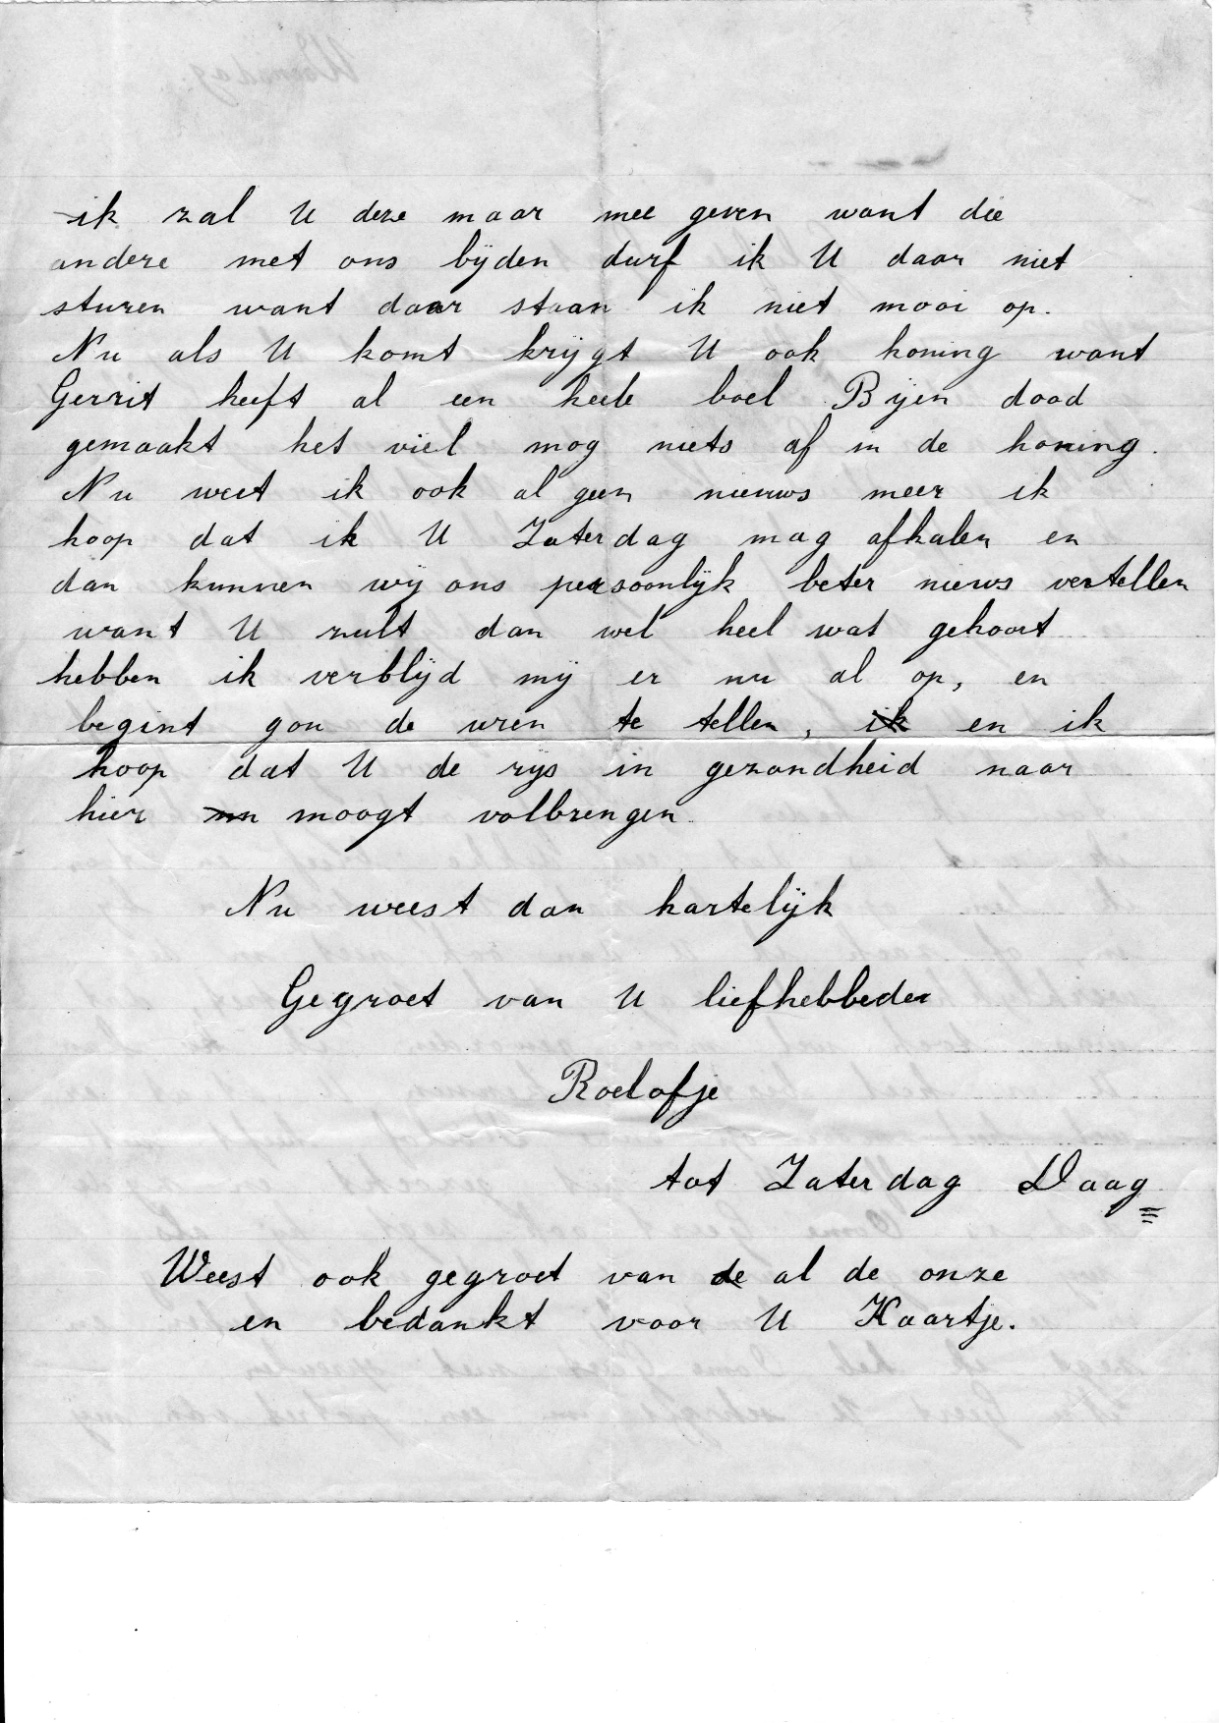 ik zal U deze maar mee geven want die
andere met ons bijden durf ik U daar niet
sturen want daar staan ik niet mooi op.
Nu als U komt krijgt U ook honing want
Gerrit heeft al een heele boel Bijen dood
gemaakt het viel mog niets af in de honing.
Nu weet ik ook al geen nieuws meer ik
hoop dat ik U Zaterdag mag afhalen en
dan kunnen wij ons persoonlijk beter niews vertellen
want U zult dan wel heel wat gehoort
hebben ik verblijd mij er nu al op, en
begint gou de uren te tellen, ik en ik
hoop dat U de rijs in gezondheid naar
hier moogt volbrengen.
Nu weest dan hartelijk
Gegroet van U liefhebbeder
Roelofje
tot Zaterdag Daag
Weest ook gegroet van de al de onze
en bedankt voor U Kaartje.